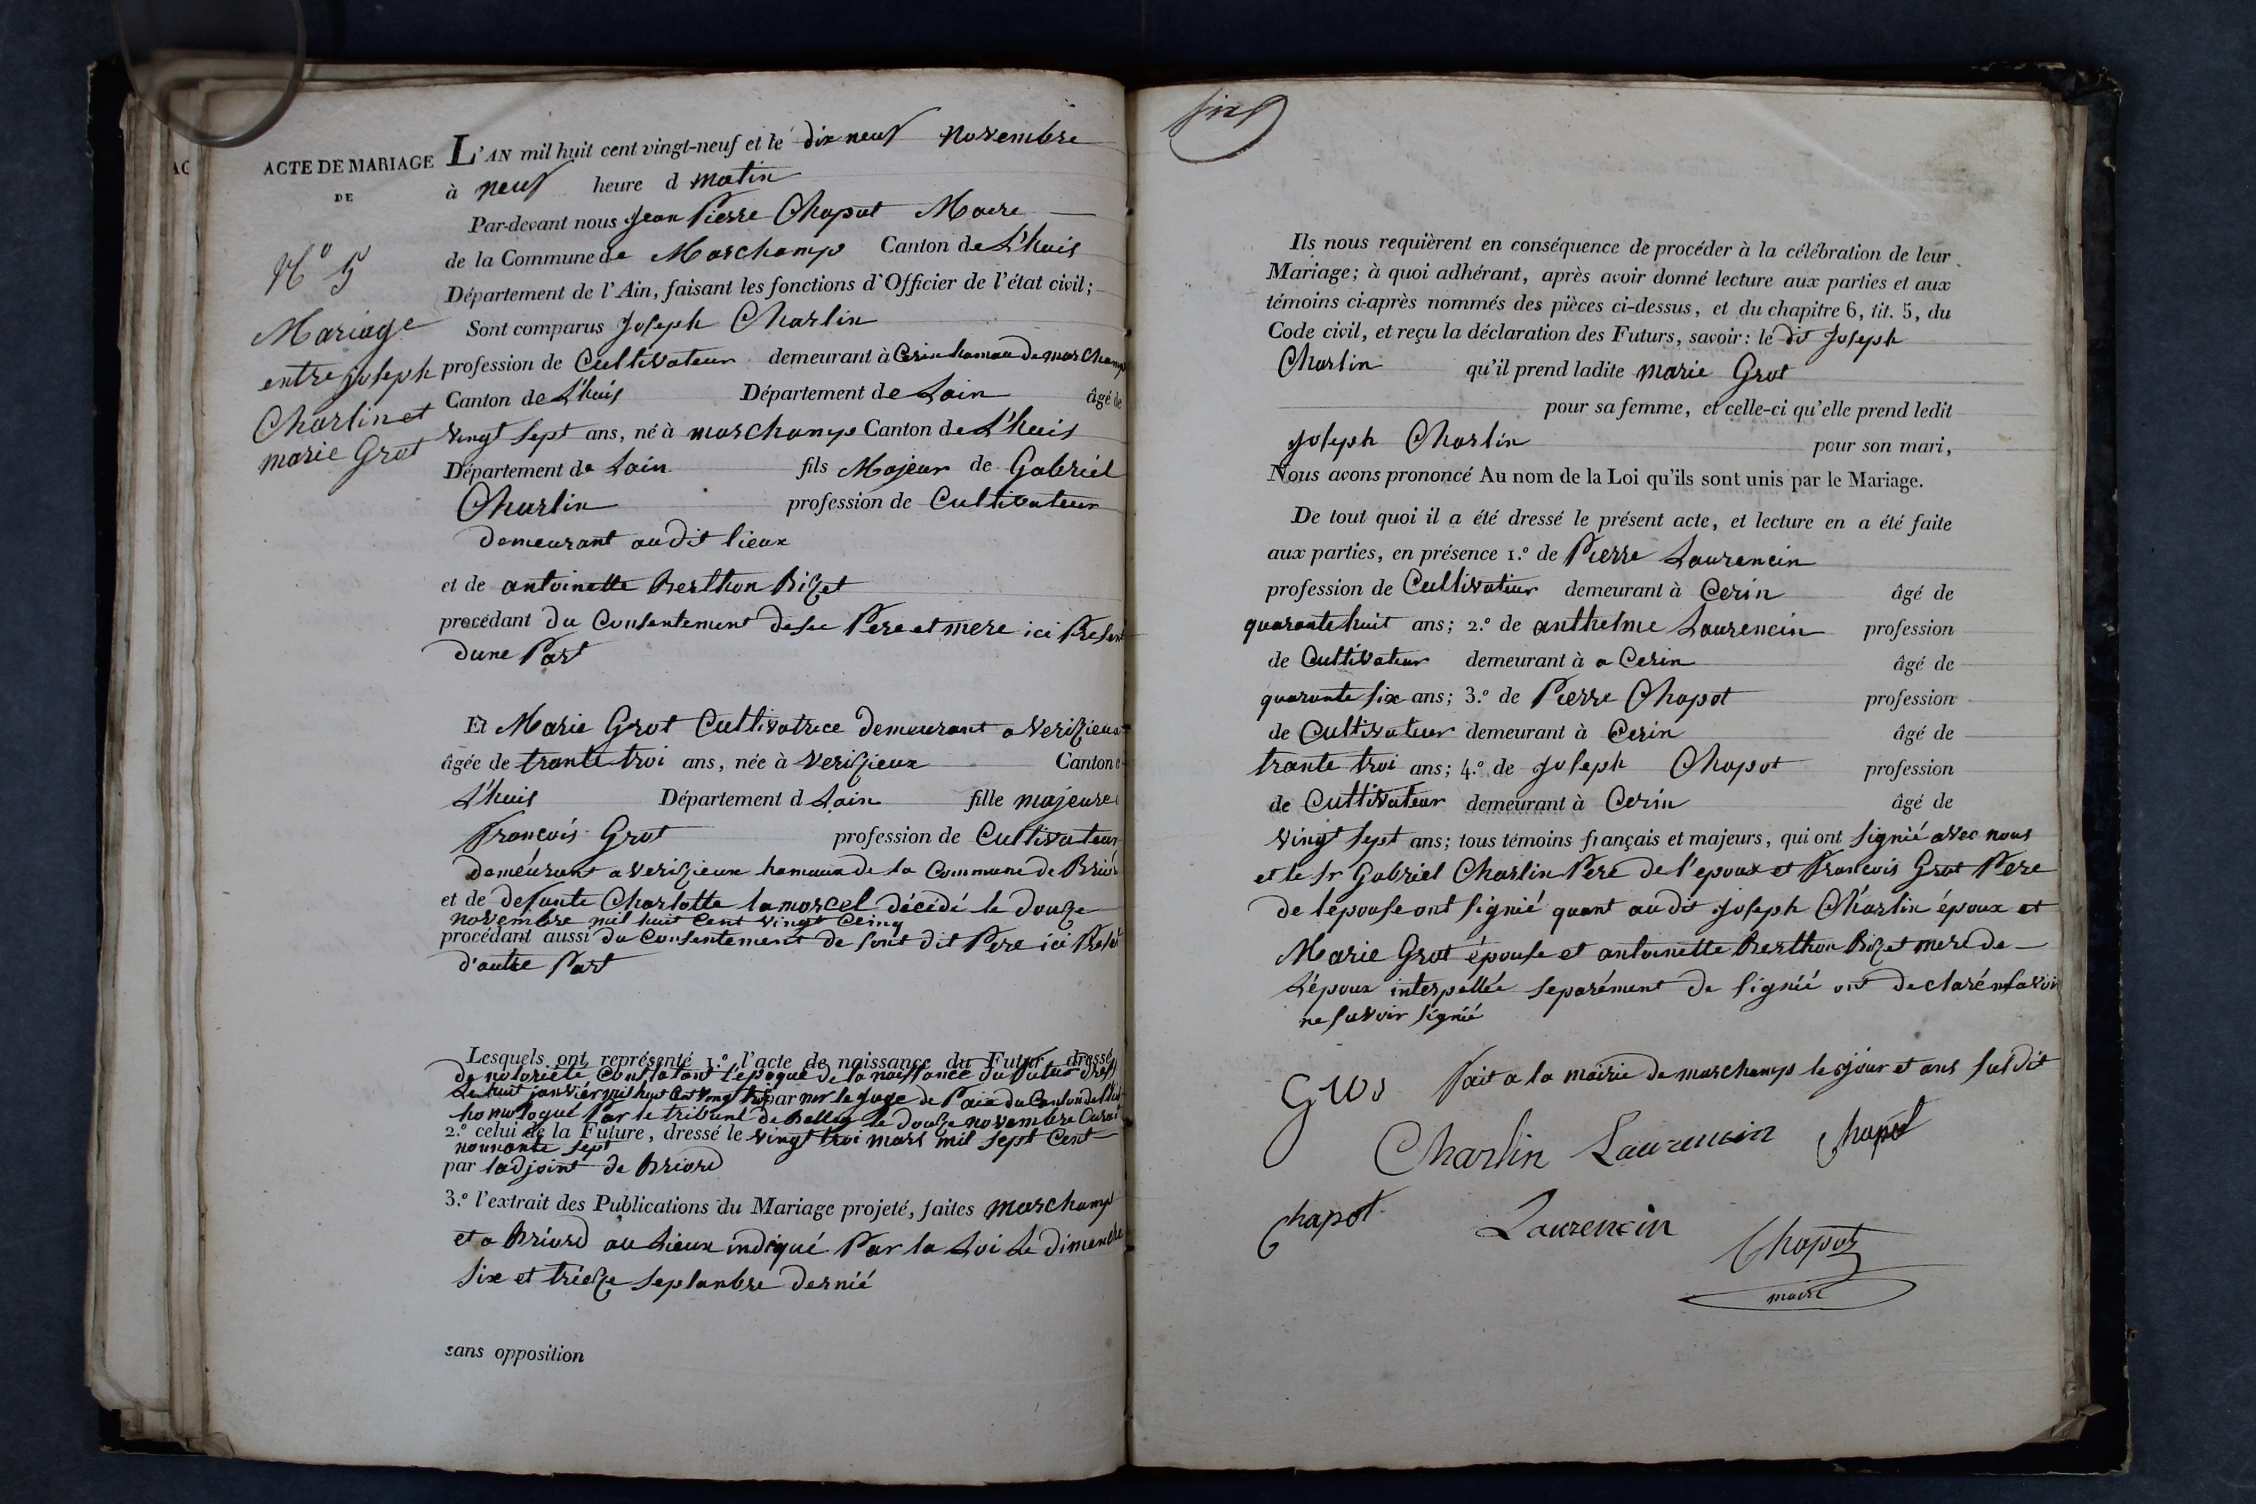 AC
ACTE DE MARIAGE
DE
N.o 5
Mariage
entre joseph
Charlin et
marie Grot
L'AN mil huit cent vingt-neuf et le dix neuf Novembre
à neuf heure d matin
Par-devant nous Jean Pierre Chapot Maire
de la Commune de Marchamp Canton de L'huis
Département de l'Ain, faisant les fonctions d'Officier de l'état civil;
Sont comparus Joseph Charlin
profession de Cultivateur demeurant à Cerin hamau de marchamp
Canton de L'huis Département de Lain âgé de
vingt sept ans, né à marchamp Canton de L'huis
Département de Lain fils Majeur de Gabriel
Charlin profession de Cultivateur
demeurant audit lieux
et de antoinette Berthon Bizet
procédant du Consentement de se Pere et mere ici Present
dune Part
Et Marie Grot Cultivatrice demeurant a Verizieux
âgée de trante troi ans, née à Verizieux Canton
L'huis Département d Lain fille majeure
Francois Grot profession de Cultivateur
demeurant a Verizieux hamaux de la Commune de Brior
et de defunte Charlotte lamarcel décédé le douze
novembre mil huit Cent vingt Ceinq
procédant aussi du Consentement de sont dit Pere ici Preset
d'autre Part
Lesquels ont représenté 1.o l'acte de naissance du Futur dressé
de notoriété Constatant l'epoque de la naissance du Futur dressé
Le huit janvier mil huit Cent vingt troi par mr le juge de Paix du Canton de L'huis
homologué Par le tribunl de Belley le douze novembre
2.o celui de la Future, dressé le vingt troi mars mil sept Cent
nounante sept
par ladjoint de Briord
3.o l'extrait des Publications du Mariage projeté, faites marchamp
et a Briord au Lieux indiqué Par la Loi Le dimanche
six et trèize septambre dernié
sans opposition
Ils nous requièrent en conséquence de procéder à la célébration de leur
Mariage; à quoi adhérant, après avoir donné lecture aux parties et aux
témoins ci-après nommés des pièces ci-dessus, et du chapitre 6, tit. 5, du
Code civil, et reçu la déclaration des Futurs, savoir: le dit Joseph
Charlin qu'il prend ladite marie Grot
pour sa femme, et celle-ci qu'elle prend ledit
joseph Charlin pour son mari,
Nous avons prononcé Au nom de la Loi qu'ils sont unis par le Mariage.
De tout quoi il a été dressé le présent acte, et lecture en a été faite
aux parties, en présence 1.o de Pierre Laurencin
profession de Cultivateur demeurant à Cerin âgé de
quarante huit ans; 2.o de anthelme Laurencin profession
de Cultivateur demeurant à a Cerin âgé de
quarante six ans; 3.o de Pierre Chapot profession
de Cultivateur demeurant à Cerin âgé de
trante troi ans; 4.o de joseph Chapot profession
de Cultivateur demeurant à Cerin âgé de
vingt sept ans; tous témoins français et majeurs, qui ont signié avec nous
et le Sr Gabriel Charlin Pere de l'epoux et Francois Grot Pere
de lépouse ont signié quant au dit joseph Charlin époux et
Marie Grot épouse et antoinette Berthon Bizet mere de
L'époux interpellée separément de signié ont declaré
ne savoir signié
Fait a la mairie de marchamp le jour et ans susdit
Gros
Charlin Laurencin Chapot
Chapot Laurencin Chapot
maire